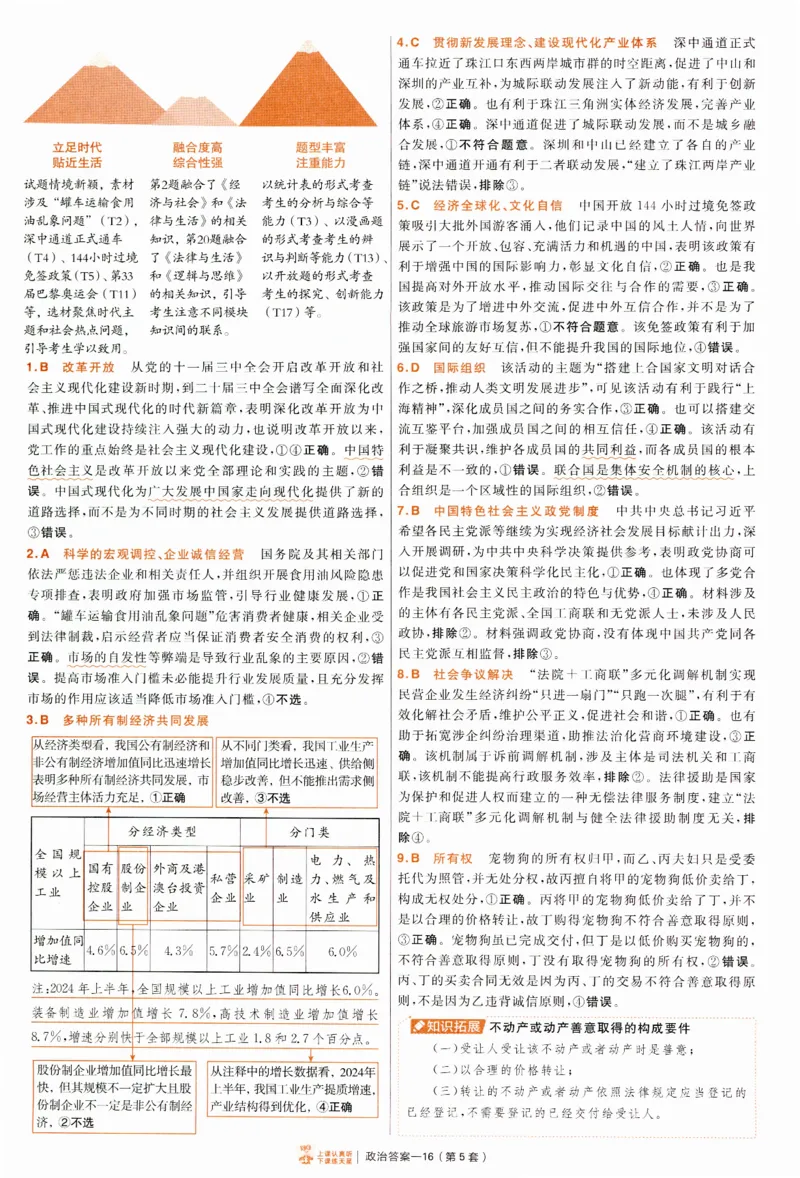 立足时代
贴近生活
试题情境新颖，素材
涉及“罐车运输食用
油乱象问题”（T2），
深中通道正式通车
（T4）、144小时过境
免签政策（T5）、第33
届巴黎奥运会（T11）
等，选材聚焦时代主
题和社会热点问题，
引导考生学以致用。
融合度高
综合性强
第2题融合了《经
济与社会》和《法
律与生活》的相关
知识，第20题融合
了《法律与生活》
和《逻辑与思维》
的相关知识，引导
考生注意不同模块
知识间的联系。
题型丰富
注重能力
以统计表的形式考查
考生的分析与综合等
能力（T3）、以漫画题
的形式考查考生的辨
识与判断等能力（T13）、
以开放题的形式考查
考生的探究、创新能力
（T17）等。
1.B 改革开放 从党的十一届三中全会开启改革开放和社
会主义现代化建设新时期，到二十届三中全会谱写全面深化改
革、推进中国式现代化的时代新篇章，表明深化改革开放为中
国式现代化建设持续注入强大的动力，也说明改革开放以来，
党工作的重点始终是社会主义现代化建设，①④正确。中国特
色社会主义是改革开放以来党全部理论和实践的主题，②错
误。中国式现代化为广大发展中国家走向现代化提供了新的
道路选择，而不是为不同时期的社会主义发展提供道路选择，
③错误。
2.A 科学的宏观调控、企业诚信经营 国务院及其相关部门
依法严惩违法企业和相关责任人，并组织开展食用油风险隐患
专项排查，表明政府加强市场监管，引导行业健康发展，①正
确。“罐车运输食用油乱象问题”危害消费者健康，相关企业受
到法律制裁，启示经营者应当保证消费者安全消费的权利，③
正确。市场的自发性等弊端是导致行业乱象的主要原因，②错
误。提高市场准入门槛未必能提升行业发展质量，且充分发挥
市场的作用应该适当降低市场准入门槛，④不选。
3.B 多种所有制经济共同发展
从经济类型看，我国公有制经济和
非公有制经济增加值同比迅速增长
表明多种所有制经济共同发展，市
场经营主体活力充足，①正确
从不同门类看，我国工业生产
增加值同比增长迅速、供给侧
稳步改善，但不能推出需求侧
改善，③不选
全国规
模以上
工业
分经济类型
分门类
国有
控股
企业
股份
制企
业
外商及港
澳台投资
企业
私营
企业
采矿
业
制造
业
电力、热
力、燃气及
水生产和
供应业
增加值同
比增速
4.6%
6.5%
4.3%
5.7%
2.4%
6.5%
6.0%
注：2024年上半年，全国规模以上工业增加值同比增长6.0%。
装备制造业增加值增长7.8%，高技术制造业增加值增长
8.7%，增速分别快于全部规模以上工业1.8和2.7个百分点。
股份制企业增加值同比增长最
快，但其规模不一定扩大且股
份制企业不一定是非公有制经
济，②不选
从注释中的增长数据看，2024年
上半年，我国工业生产提质增速，
产业结构得到优化，④正确
4.C 贯彻新发展理念、建设现代化产业体系 深中通道正式
通车拉近了珠江口东西两岸城市群的时空距离，促进了中山和
深圳的产业互补，为城际联动发展注入了新动能，有利于创新
发展，②正确。也有利于珠江三角洲实体经济发展，完善产业
体系，④正确。深中通道促进了城际联动发展，而不是城乡融
合发展，①不符合题意。深圳和中山已经建立了各自的产业
链，深中通道开通有利于二者联动发展，“建立了珠江两岸产业
链”说法错误，排除③。
5.C 经济全球化、文化自信 中国开放144小时过境免签政
策吸引大批外国游客涌入，他们记录中国的风土人情，向世界
展示了一个开放、包容、充满活力和机遇的中国，表明该政策有
利于增强中国的国际影响力，彰显文化自信，②正确。也是我
国提高对外开放水平，推动国际交往与合作的需要，③正确。
该政策是为了增进中外交流，促进中外互信合作，并不是为了
推动全球旅游市场复苏，①不符合题意。该免签政策有利于加
强国家间的友好互信，但不能提升我国的国际地位，④错误。
6.D 国际组织 该活动的主题为“搭建上合国家文明对话合
作之桥，推动人类文明发展进步”，可见该活动有利于践行“上
海精神”，深化成员国之间的务实合作，③正确。也可以搭建交
流互鉴平台，加强成员国之间的相互信任，④正确。该活动有
利于凝聚共识，维护各成员国的共同利益，而各成员国的根本
利益是不一致的，①错误。联合国是集体安全机制的核心，上
合组织是一个区域性的国际组织，②错误。
7.B 中国特色社会主义政党制度 中共中央总书记习近平
希望各民主党派等继续为实现经济社会发展目标献计出力，深
入开展调研，为中共中央科学决策提供参考，表明政党协商可
以促进党和国家决策科学化民主化，①正确。也体现了多党合
作是我国社会主义民主政治的特色与优势，④正确。材料涉及
的主体有各民主党派、全国工商联和无党派人士，未涉及人民
政协，排除②。材料强调政党协商，没有体现中国共产党同各
民主党派互相监督，排除③。
8.B 社会争议解决 “法院＋工商联”多元化调解机制实现
民营企业发生经济纠纷“只进一扇门”“只跑一次腿”，有利于有
效化解社会矛盾，维护公平正义，促进社会和谐，①正确。也有
助于拓宽涉企纠纷治理渠道，助推法治化营商环境建设，③正
确。该机制属于诉前调解机制，涉及主体是司法机关和工商
联，该机制不能提高行政服务效率，排除②。法律援助是国家
为保护和促进人权而建立的一种无偿法律服务制度，建立“法
院＋工商联”多元化调解机制与健全法律援助制度无关，排
除④。
9.B 所有权 宠物狗的所有权归甲，而乙、丙夫妇只是受委
托代为照管，并无处分权，故丙擅自将甲的宠物狗低价卖给丁，
构成无权处分，①正确。丙将甲的宠物狗低价卖给了丁，并不
是以合理的价格转让，故丁购得宠物狗不符合善意取得原则，
③正确。宠物狗虽已完成交付，但丁是以低价购买宠物狗的，
不符合善意取得原则，丁没有取得宠物狗的所有权，②错误。
丙、丁的买卖合同无效是因为丙、丁的交易不符合善意取得原
则，不是因为乙违背诚信原则，④错误。
知识拓展 不动产或动产善意取得的构成要件
（一）受让人受让该不动产或者动产时是善意；
（二）以合理的价格转让；
（三）转让的不动产或者动产依照法律规定应当登记的
已经登记，不需要登记的已经交付给受让人。
上课认真听
下课练天星
政治答案—16（第5套）